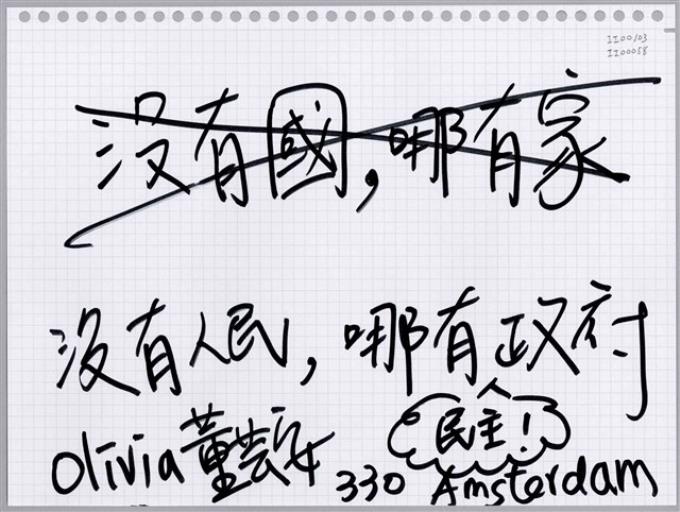 II00103
II00058
沒有國,哪有家
沒有人民,哪有政府
民主!
Olivia董芸安 330 Amsterdam